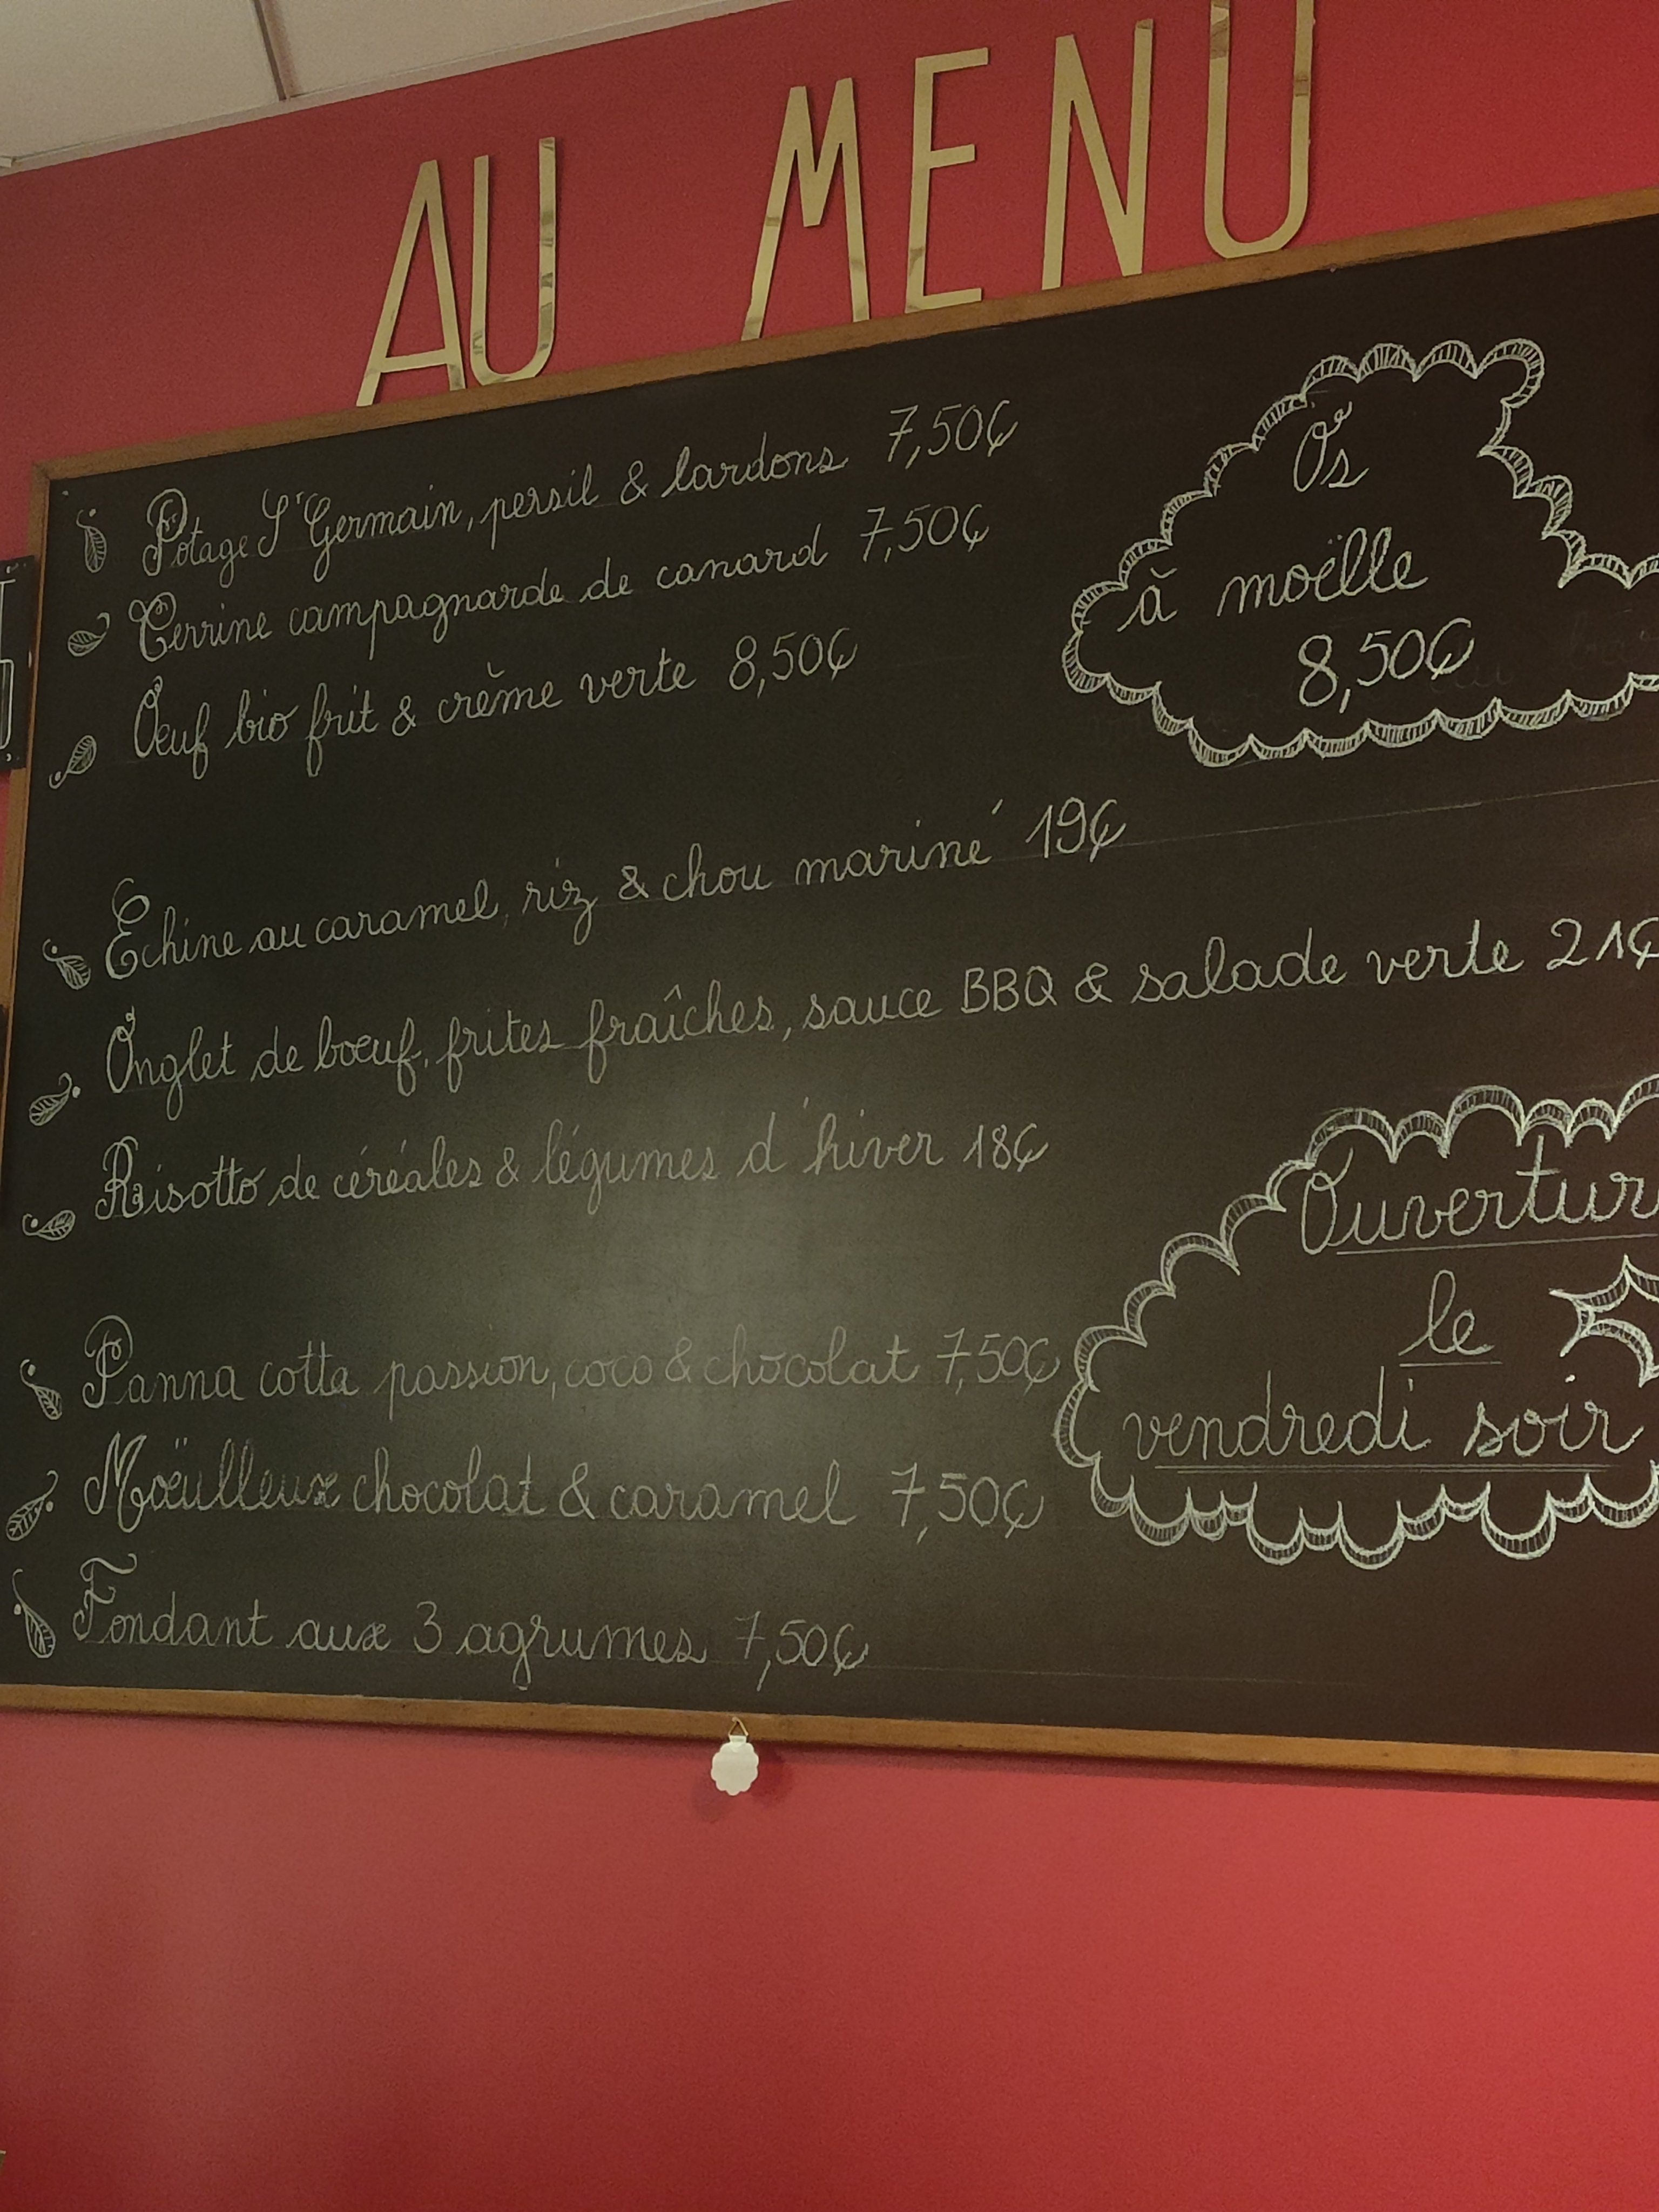 AU MENU
Potage St Germain, persil & lardons 7,50€
Terrine campagnarde de canard 7,50€
Oeuf bio frit & crème verte 8,50€
Os
à moëlle
8,50€
Echine au caramel, riz & chou mariné 19€
Onglet de boeuf, frites fraîches, sauce BBQ & salade verte 21€
Risotto de céréales & légumes d'hiver 18€
Panna cotta passion, coco & chocolat 7,50€
Moëulleux chocolat & caramel 7,50€
Fondant aux 3 agrumes 7,50€
Ouvertur
le
vendredi soir